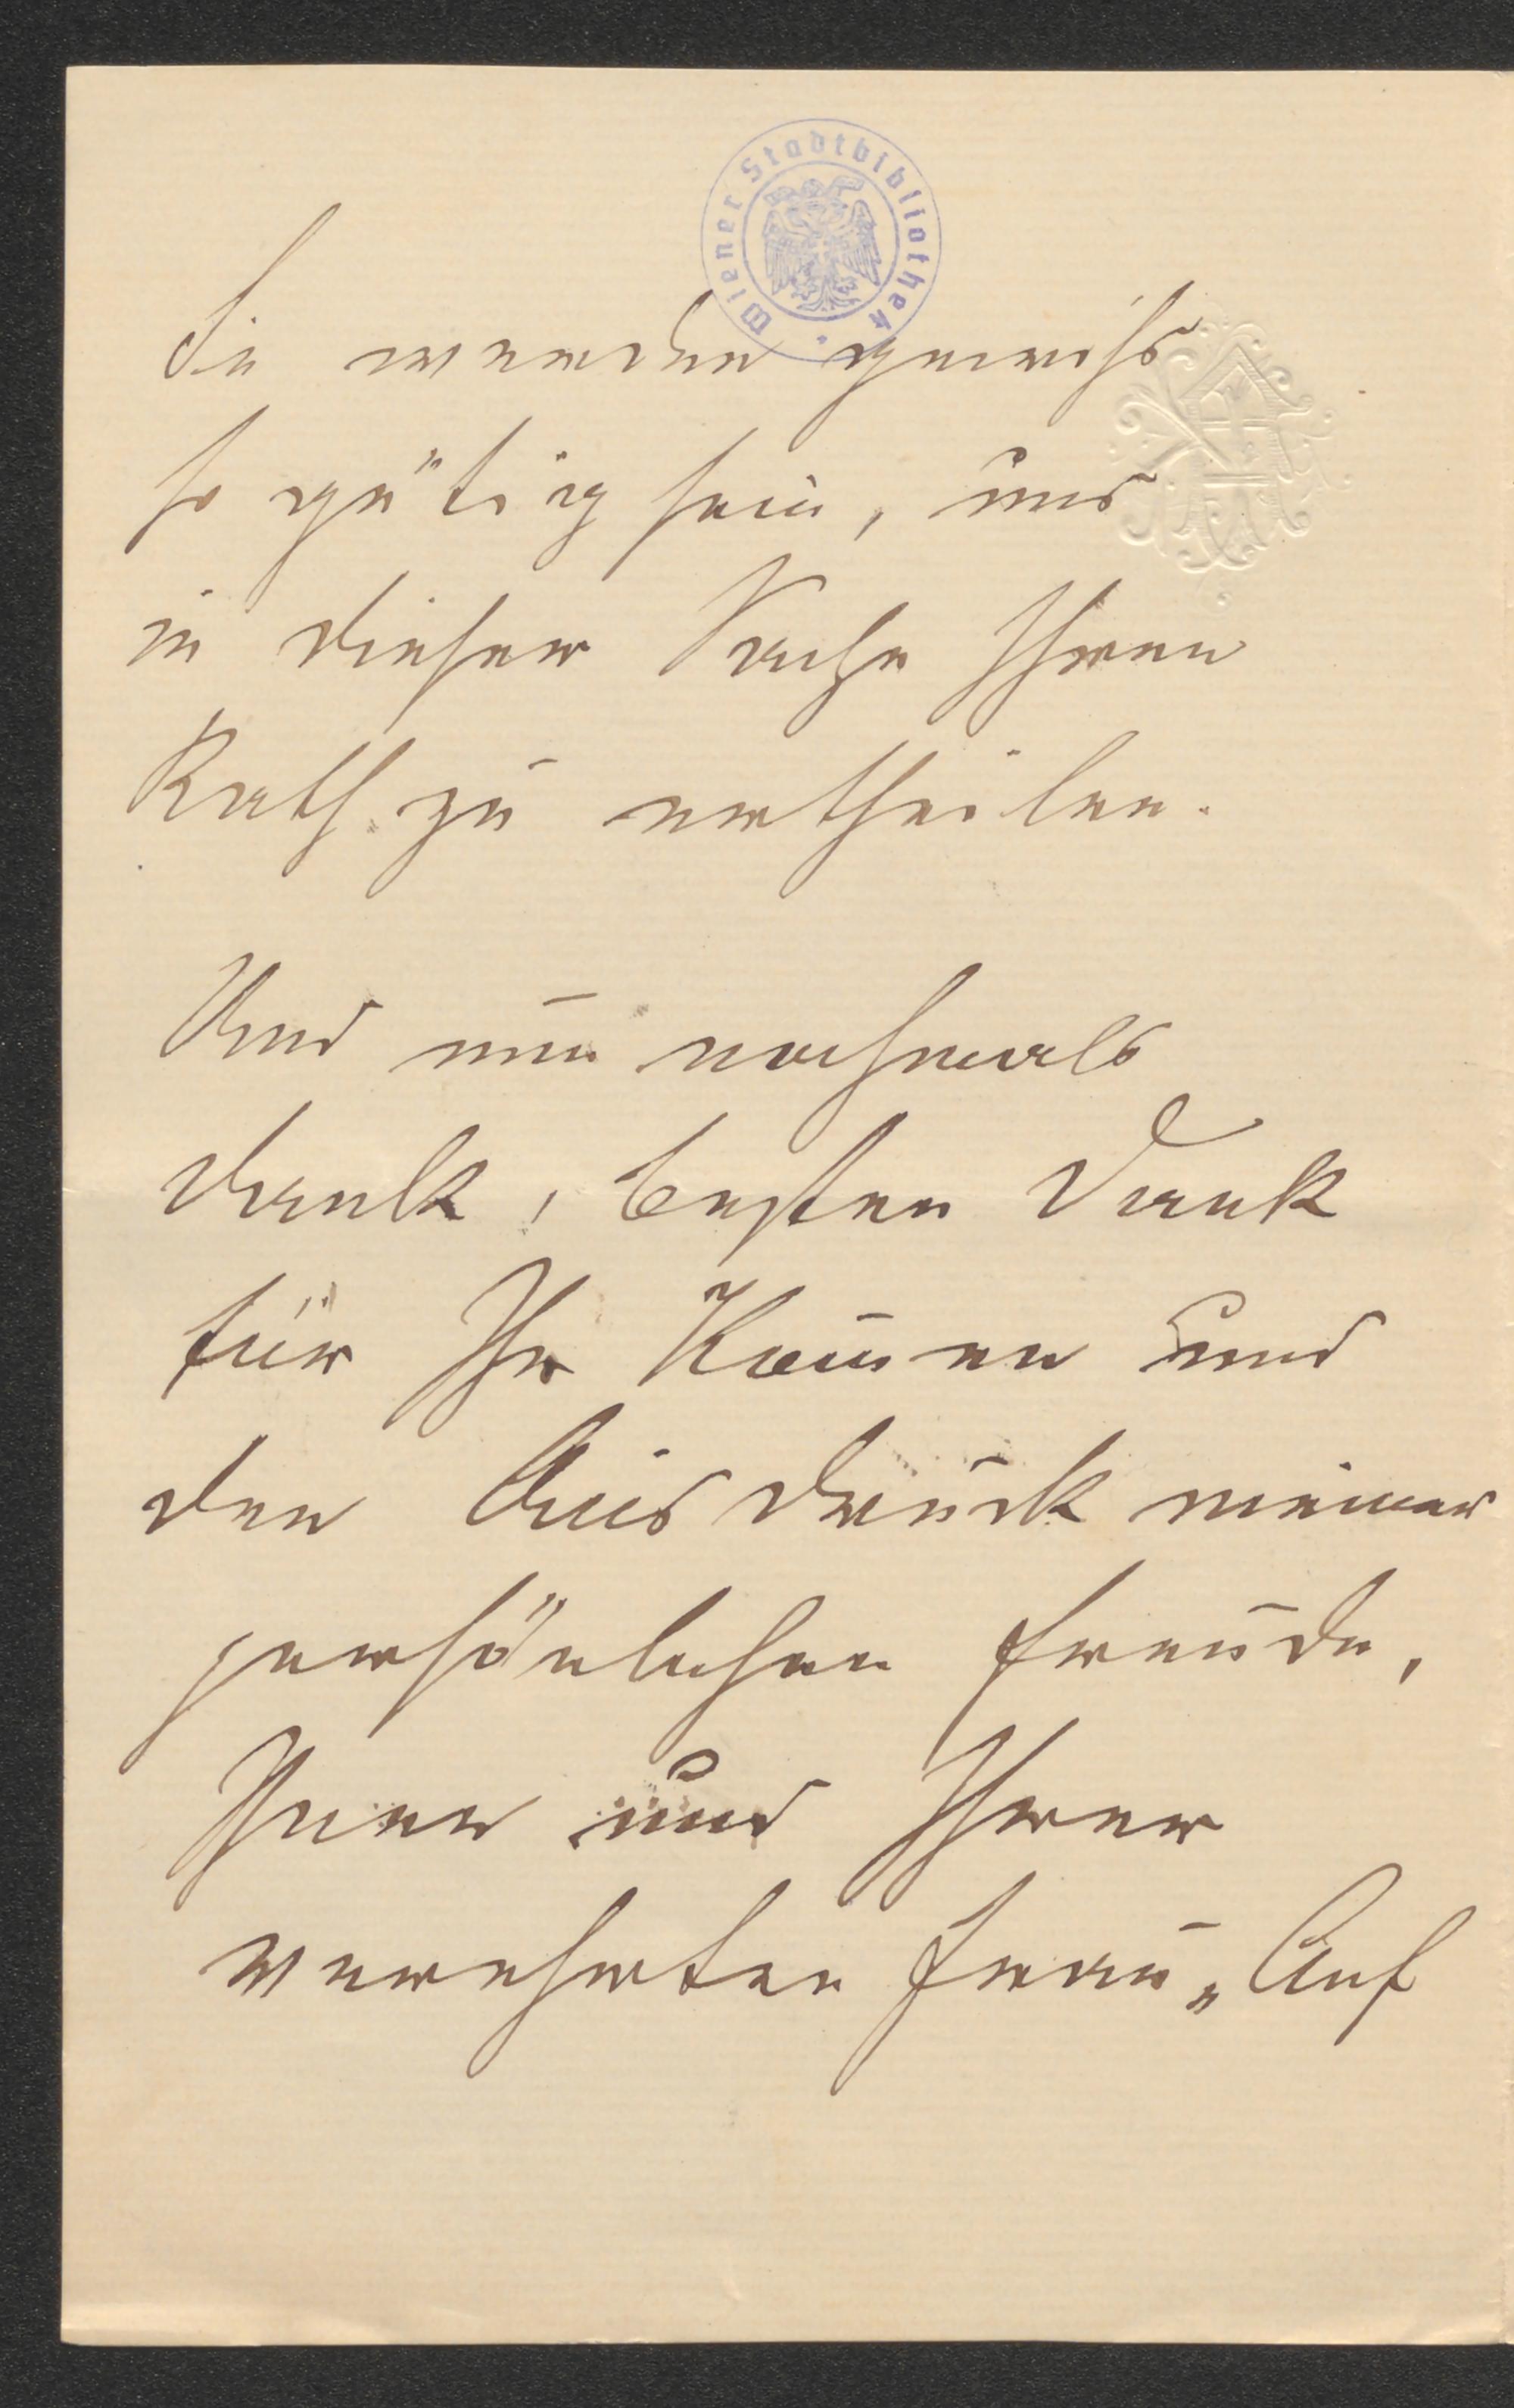 Wiener Stadtbibliothek
Sie werden gewiß
so gütig sein, uns
in dieser Sache Ihren
Rath zu ertheilen.
Und nun nochmals
Dank, besten Dank
für Ihr Kom̅en und
den Ausdruck meiner
persönlichen Freude,
Ihnen und Ihrer
verehrten Frau „Auf